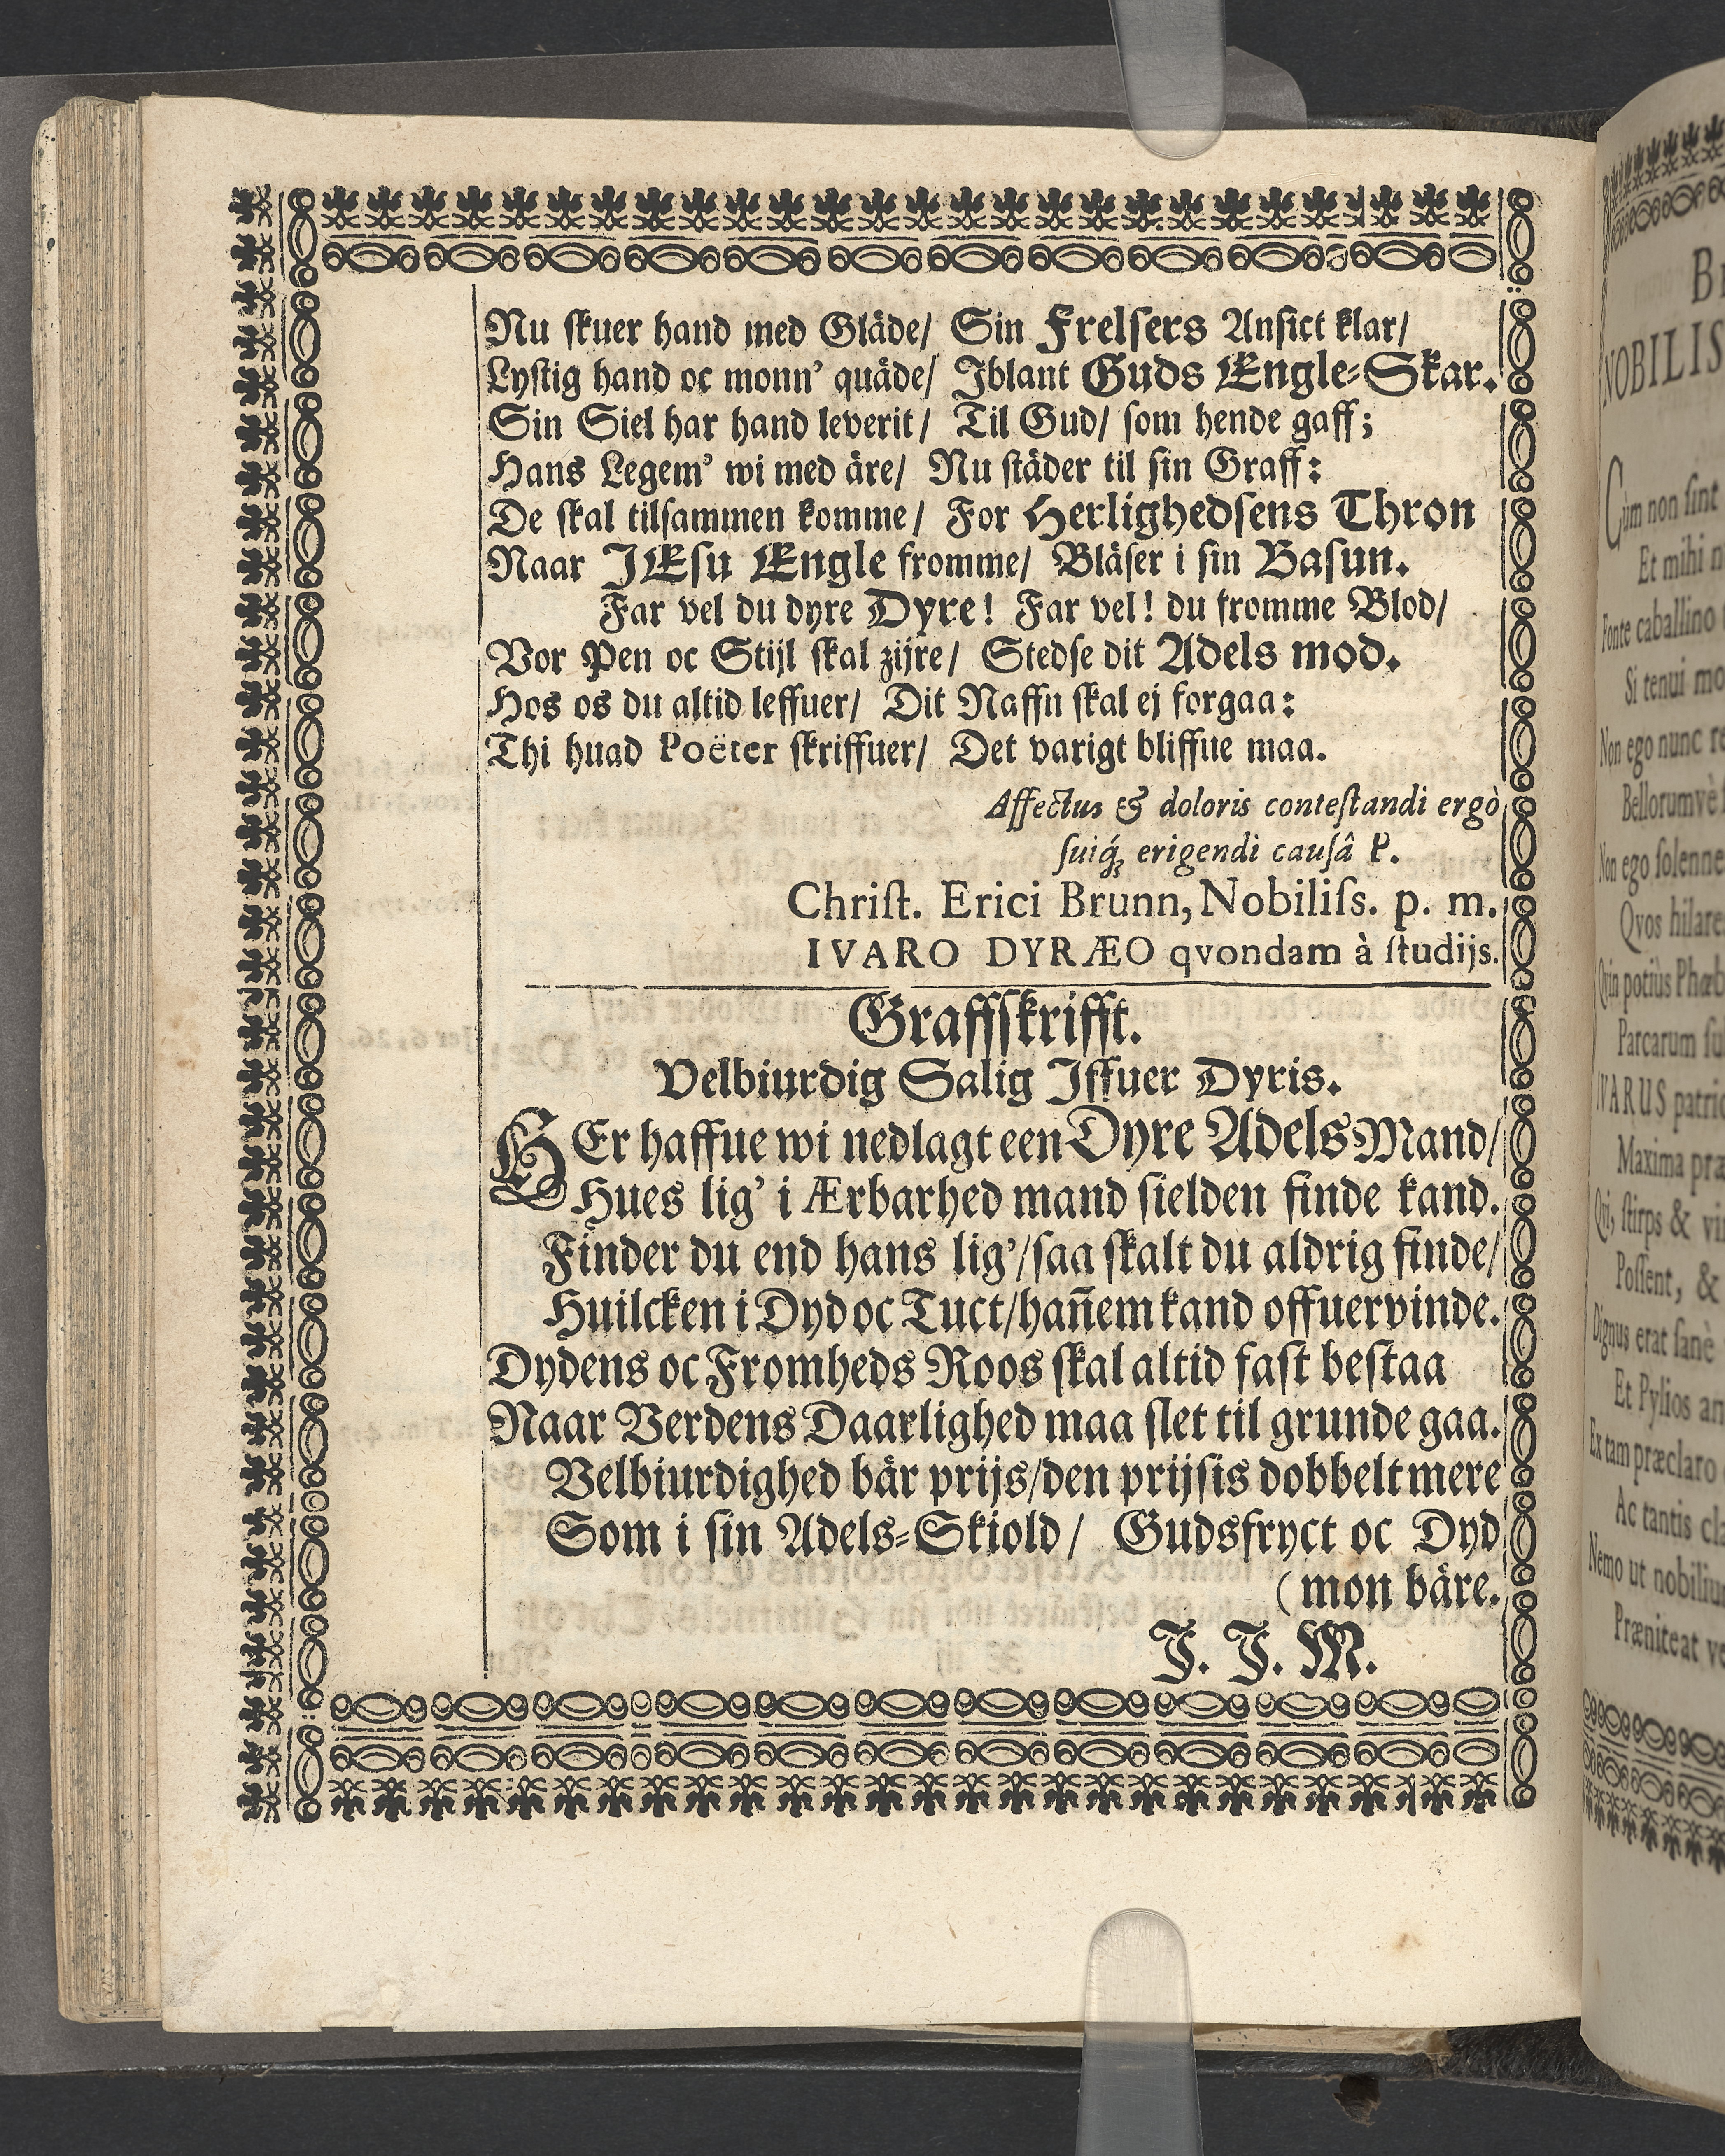 Nu skuer hand med Gläde/ Sin Frelsers Ansict klar/
Lystig hand oc monn' quäde/ Iblant Guds Engle-Skar.
Sin Siel har hand leverit/ Til Gud/ som hende gaff;
Hans Legem' wi med äre/ Nu städer til sin Graff:
De skal tilsammen komme/ For Herlighedsens Thron
Naar JEsu Engle fromme/ Bläser i sin Basun.
Far vel du dyre Dyre! Far vel! du fromme Blod/
Vor Pen oc Stijl skal zijre/ Stedse dit Adels mod.
Hos os du altid leffuer/ Dit Naffn skal ej forgaa:
Thi huad Poëter skriffuer/ Det varigt bliffue maa.
Affectus & doloris contestandi ergò
suiq́ꝫ erigendi causâ P.
Christ. Erici Brunn, Nobiliss. p. m.
IVARO DYRÆO qvondam à studijs.
Graffskrifft.
Velbiurdig Salig Iffuer Dyris.
HEr haffue wi nedlagt een Dyre Adels Mand/
Hues lig' i Ærbarhed mand sielden finde kand.
Finder du end hans lig'/saa skalt du aldrig finde/
Huilcken i Dyd oc Tuct/hañem kand offuervinde.
Dydens oc Fromheds Roos skal altid fast bestaa
Naar Verdens Daarlighed maa slet til grunde gaa.
Velbiurdighed bär prijs/den prijsis dobbelt mere
Som i sin Adels-Skiold/ Gudsfryct oc Dyd
(mon bäre.
J. J. M.
NOBILIS
Cùm non sint
Et mihi
Fonte caballino
Si tenui
Non ego nunc
Bellorumvè
Non ego solenne
Qvos hilare
Qvin potiùs Phœb
Parcarum
IVARUS patri
Maxima
Qvi, stirps &
Possent, &
Dignus erat sanè
Et Pylios
Ex tam præclaro
Ac tantis
Nemo ut nobiliu
Præniteat